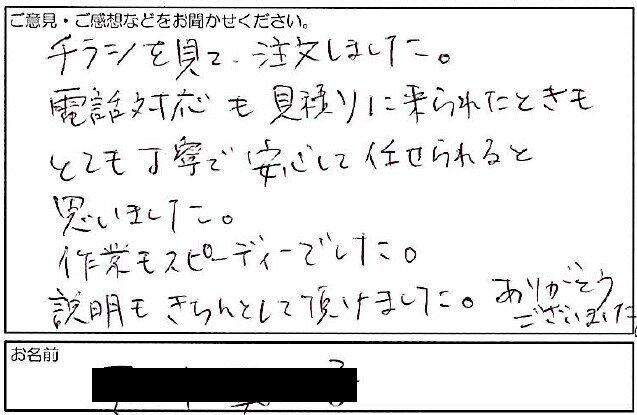 ご意見・ご感想などをお聞かせください。
チラシを見て、注文しました。
電話対応も見積りに来られたときも
とても丁寧で安心して任せられると
思いました。
作業もスピーディーでした。
説明もきちんとして頂けました。ありがとう
ございました。
お名前